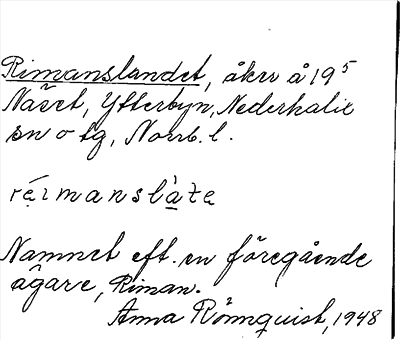 Rimanslandet, åker å 19⁵
Näset, Ytterbyn, Nederkalix
sn o tg, Norrb. l.
réimanslàtẹ
Namnet eft. en föregående
ägare, Riman.
Anna Rönnquist, 1948